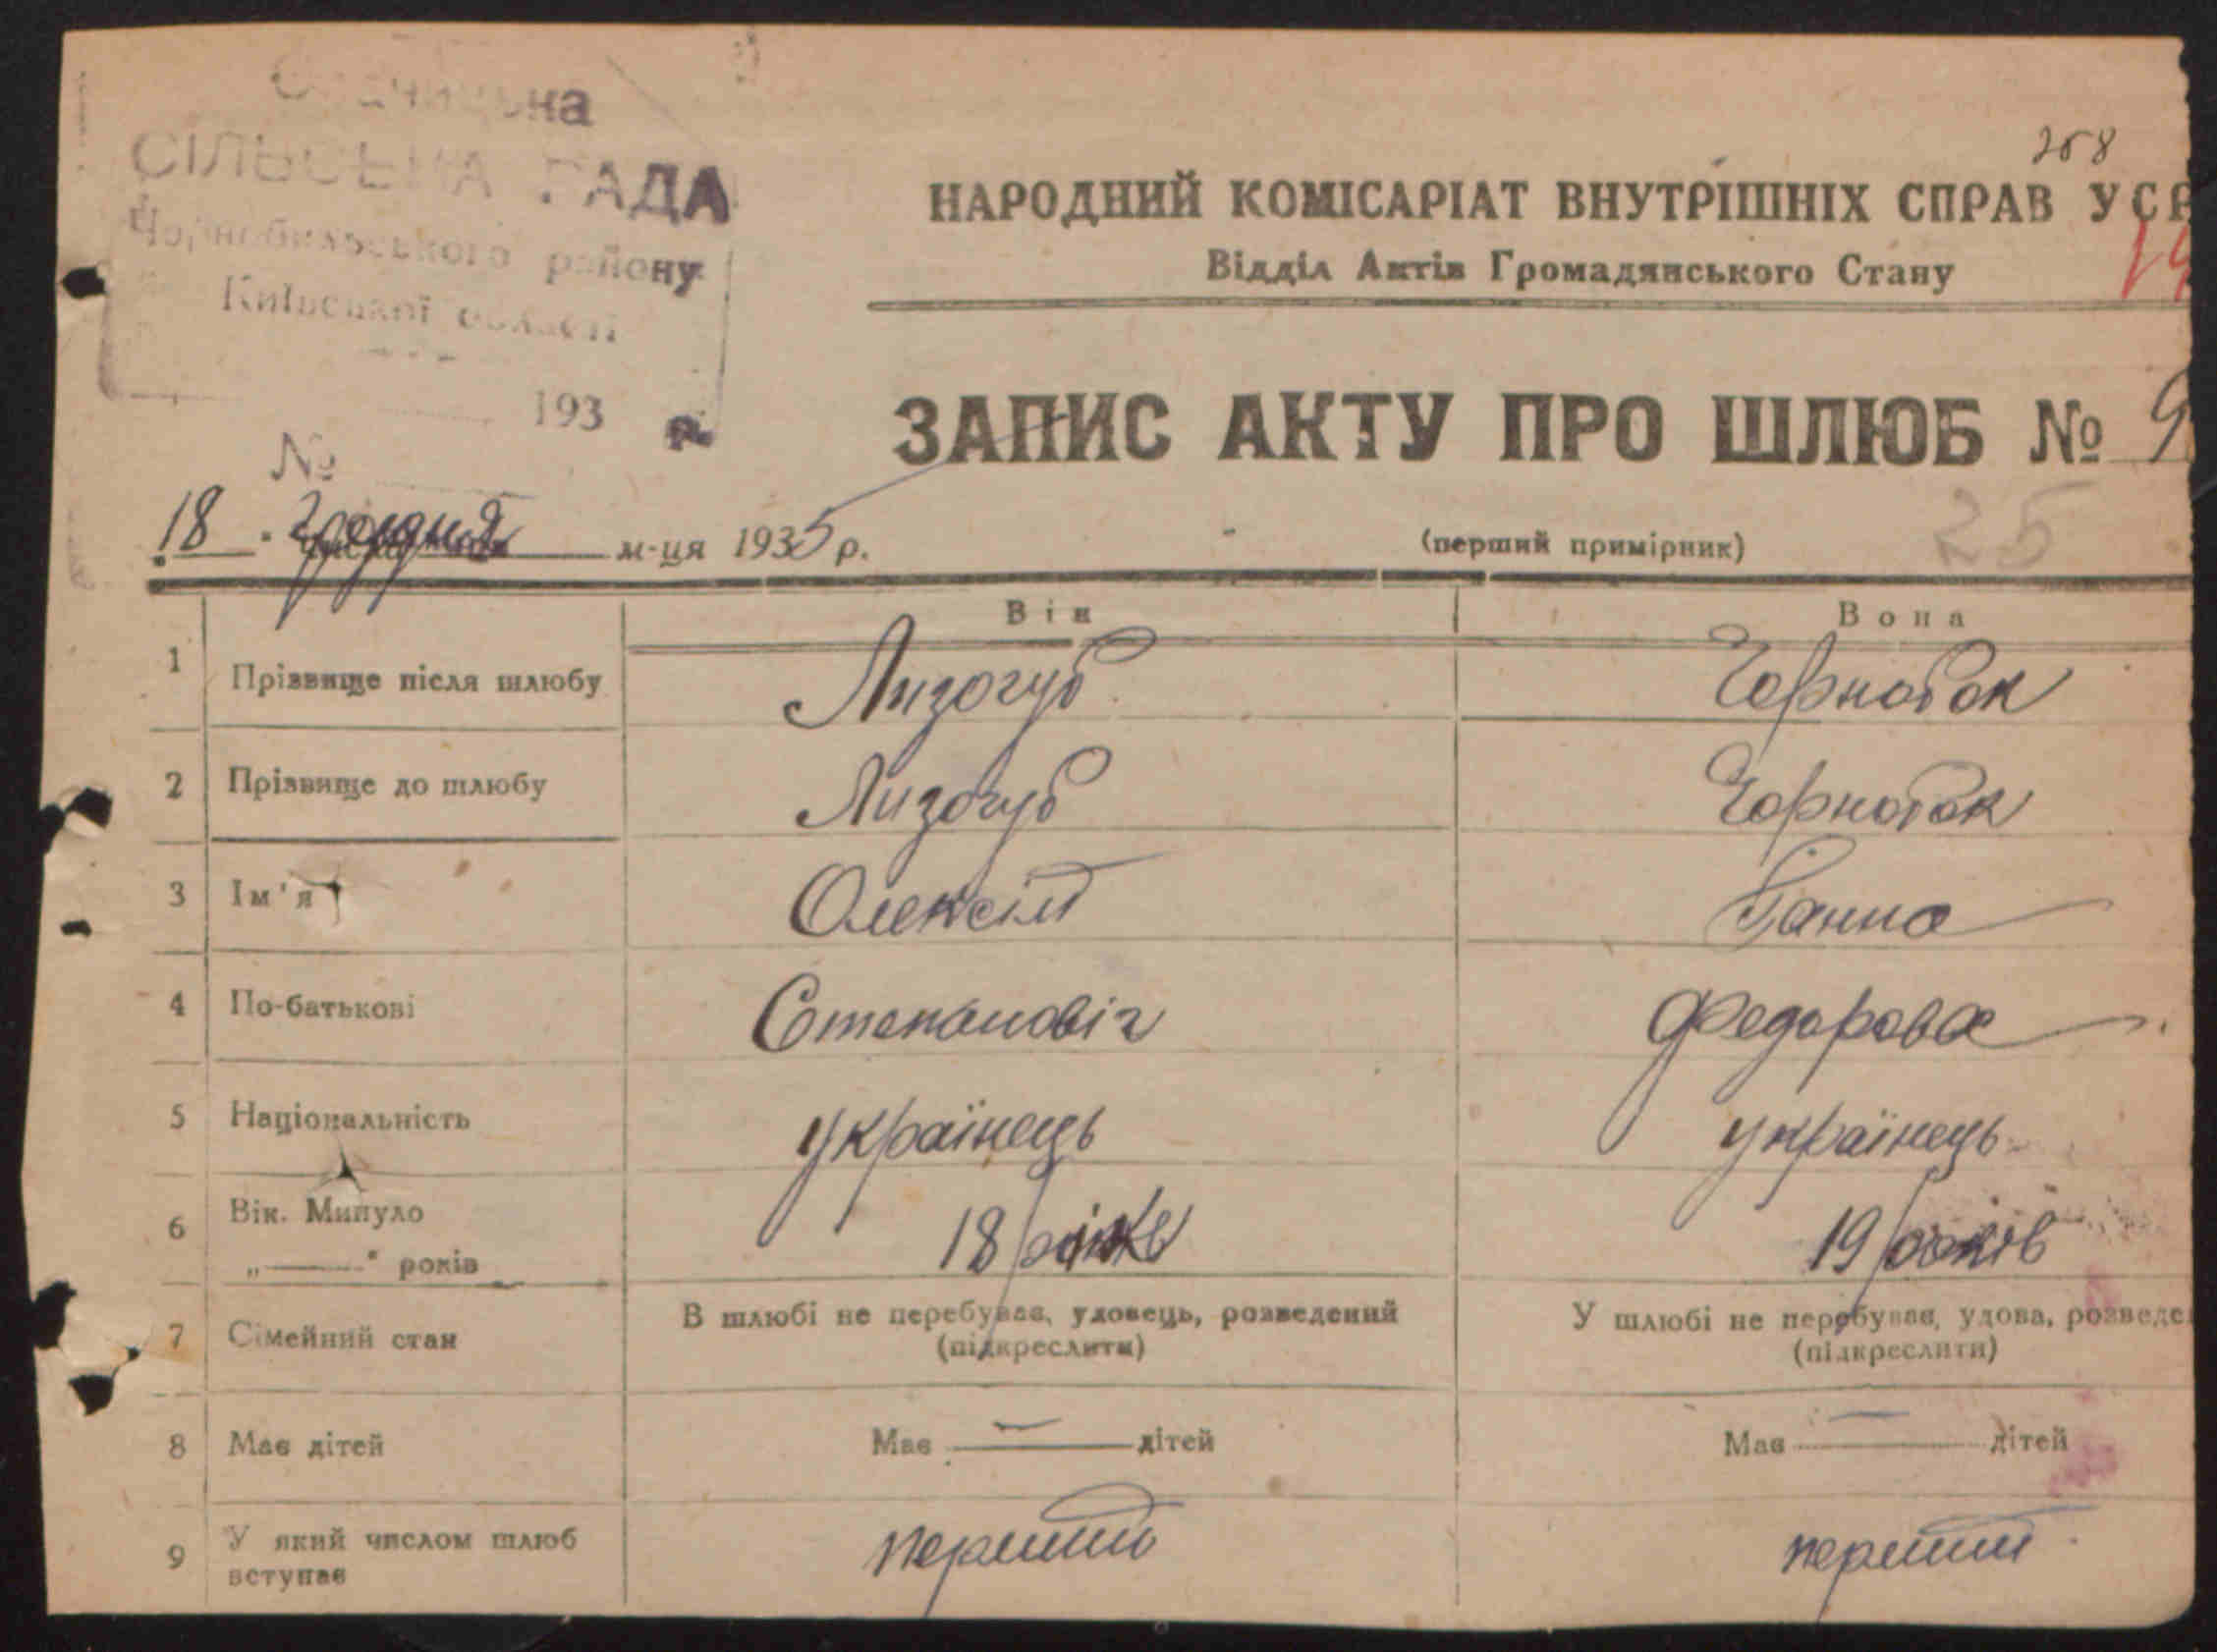 СІЛЬСЬКА РАДА
Чорнобильського району
Київської області
193 р.
№
258
НАРОДНИЙ КОМІСАРІАТ ВНУТРІШНІХ СПРАВ УСР
Відділ Актів Громадянського Стану
ЗАПИС АКТУ ПРО ШЛЮБ № 9
25
18 грудня м-ця 1935 р.
(перший примірник)
Він Вона
1 Прізвище після шлюбу Лизогуб Чорнобок
2 Прізвище до шлюбу Лизогуб Чорнобок
3 Ім'я Олексій Ганна
4 По-батькові Степановіч Федорова
5 Національність українець українець
6 Вік. Минуло „——" років 18 19 років
7 Сімейний стан В шлюбі не перебував, уловець, розведений (підкреслити) У шлюбі не перебував, удова, розведе (підкреслити)
8 Має дітей Має — дітей Має — дітей
9 У який числом шлюб вступає перший перший